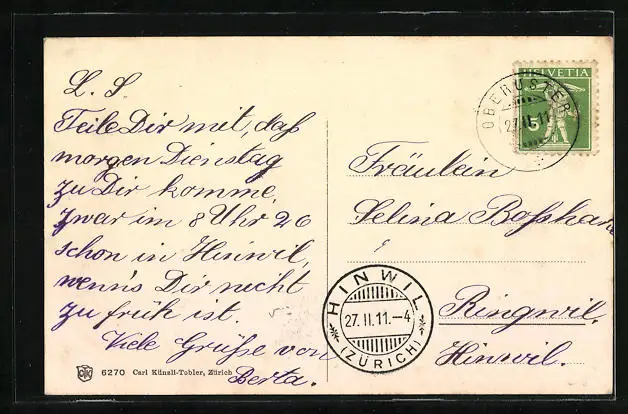 L. S.
Teile Dir mit, daß
morgen Dienstag
zu Dir komme,
zwar im 8 Uhr 26
schon in Hinwil,
wenn's Dir nicht
zu früh ist.
Viele Grüße von
Berta.
6270 Carl Künzli-Tobler, Zürich
HELVETIA
5
OBERUSTER
27.II.11
Fräulein
Selina Boßhard
HINWIL
27.II.11.–4
(ZÜRICH)
Ringwil.
Hinwil.